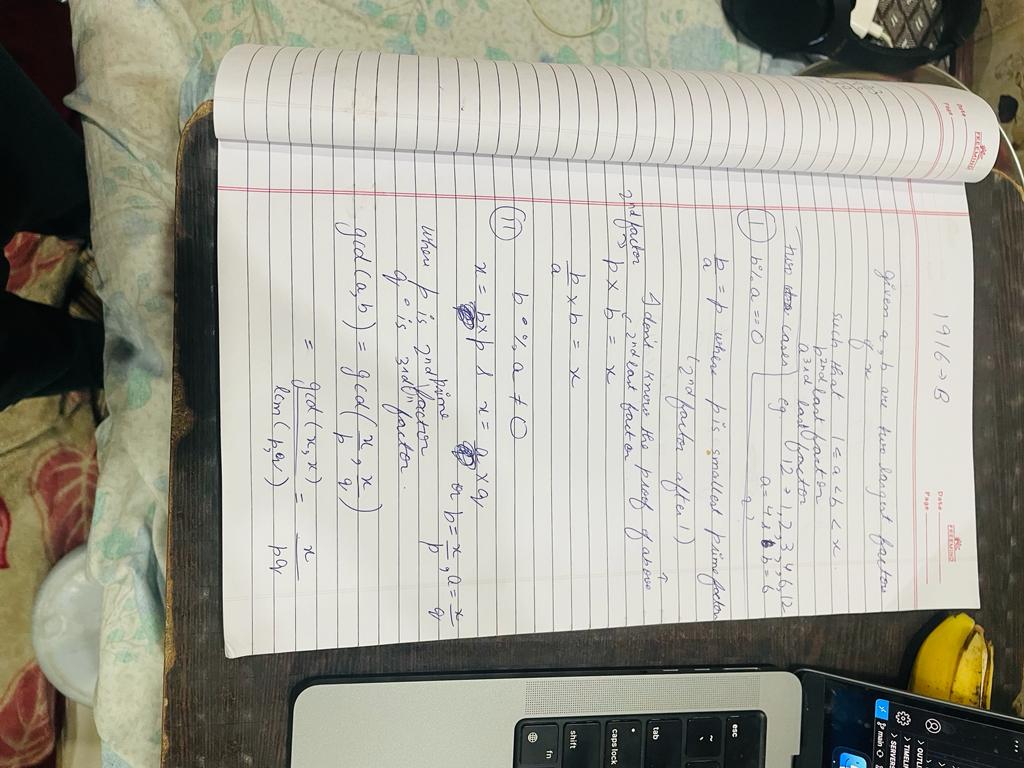 FREEMIND
Date
Page
1916 → B
given a, b are two largest factors
of x
such that 1 ≤ a < b < x.
b 2nd last factor
a 3rd last factor
two cases eg 12 = 1, 2, 3, 4, 6, 12
a = 4, b = 6
I b % a == 0
b/a = p where p is smallest prime factor
(2nd factor after 1)
I don't know the proof of above ↑
2nd factor
2nd last factor
p × b = x
b/a × b = x
II b % a ≠ 0
x = b × p & x = a × q or b = x/p, a = x/q
when p is 2nd prime factor
q is 3rd factor.
gcd(a, b) = gcd(x/p, x/q)
= gcd(x, x)/lcm(p, q) = x/pq
FREEMIND
Date
Page
esc
~
`
tab
caps lock
shift
fn
OUTLI
TIMELI
SERVERS
main